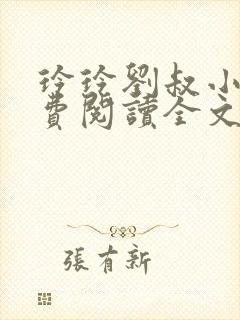 玲玲劉叔小
費閱讀全文
張有新